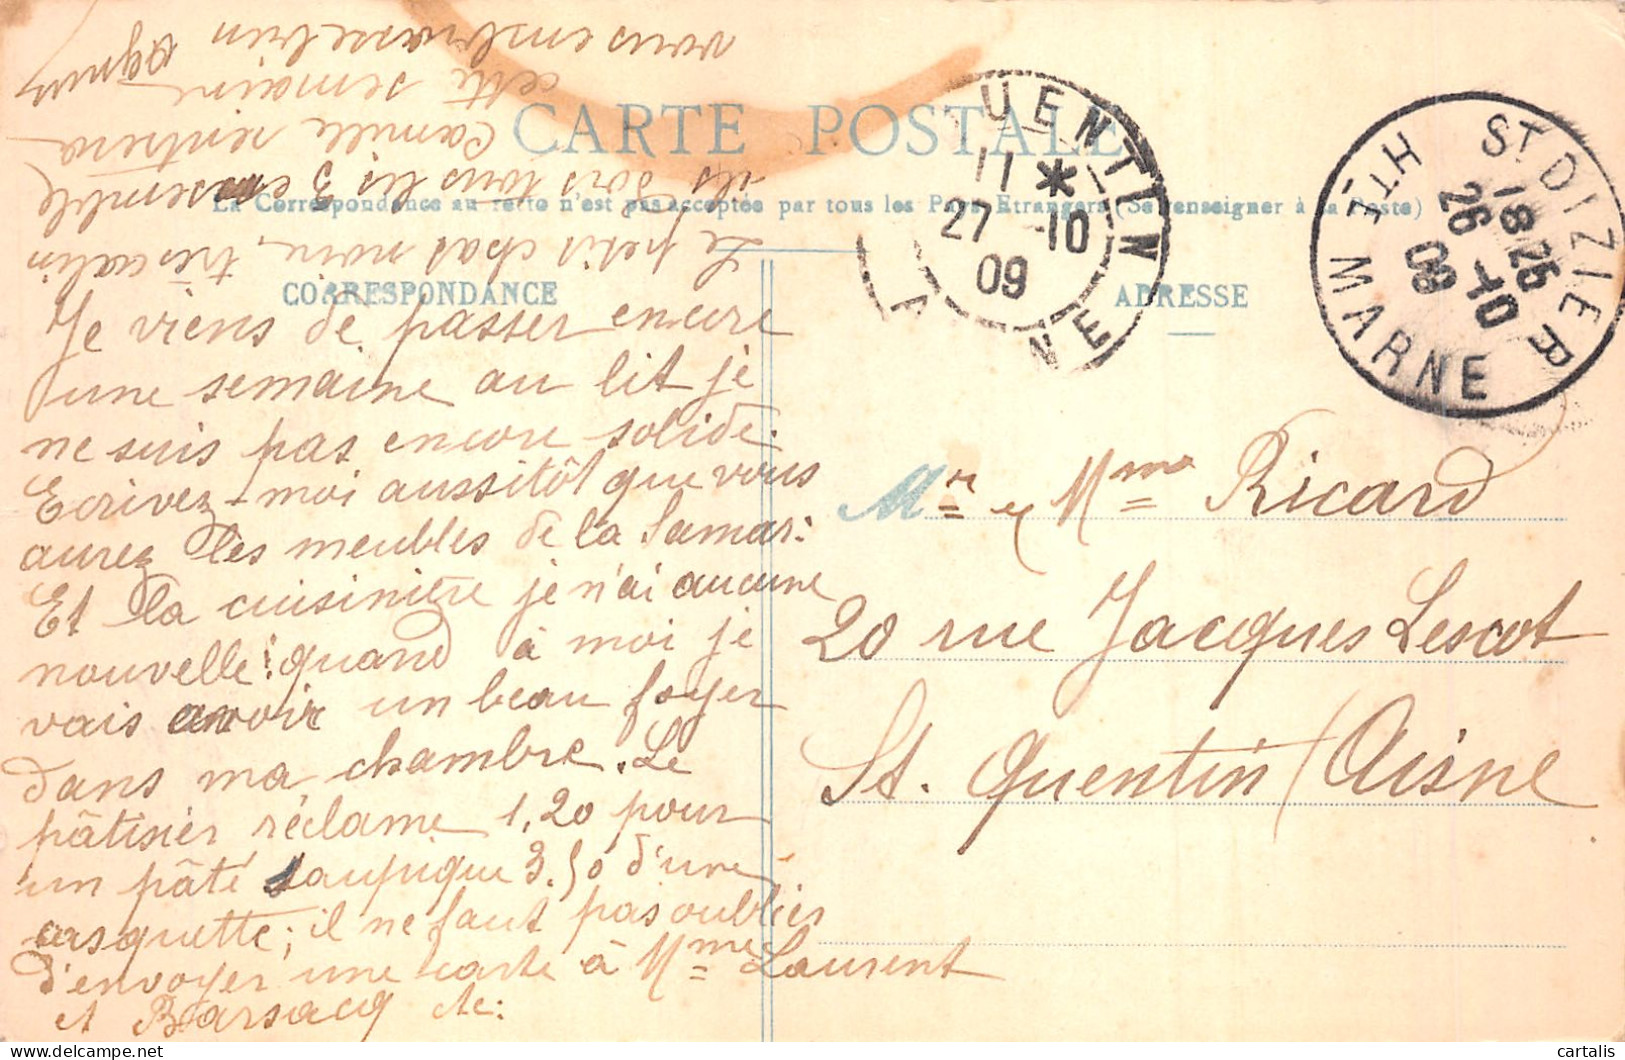 CARTE POSTALE
La Correspondance au recto n'est pas acceptée par tous les Pays Etrangers (Se renseigner à la Poste)
CORRESPONDANCE
Je viens de passer encore
une semaine au lit je
ne suis pas encore solide.
Ecrivez-moi aussitôt que vous
aurez les meubles de la Samar:
Et la cuisinière je n'ai aucune
nouvelle! quand à moi je
vais avoir un beau foyer
dans ma chambre. Le
pâtissier réclame 1,20 pour
un pâté 3.50 d'une
casquette; il ne faut pas oublier
d'envoyer une carte à Mme Laurent
et Barsacq etc:
Le petit chat noir, très calin
ils dors tous les 3 ensemble
Camille rentrera
cette semaine
vous embrasse bien
ADRESSE
Mr et Mme Ricard
20 rue Jacques Lescot
St. Quentin (Aisne
UENTIN
11 *
27 -10
09
A NE
ST DIZIER
18 25
26 -10
09
HTE MARNE
cartalis